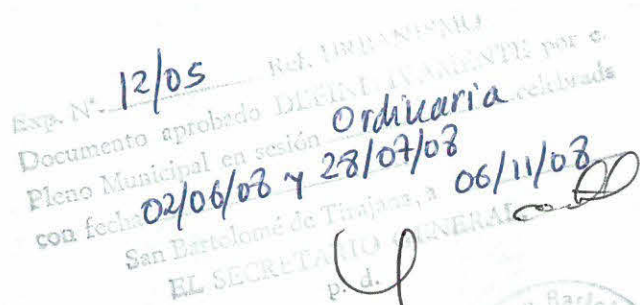 Exp. Nº. 12/05 Ref. URBANISMO
Documento aprobado DEFINITIVAMENTE por e.
Pleno Municipal en sesión Ordinaria celebrada
con fecha 02/06/08 y 28/07/08
San Bartolomé de Tirajana, a 06/11/08
EL SECRETARIO GENERAL
p. d.